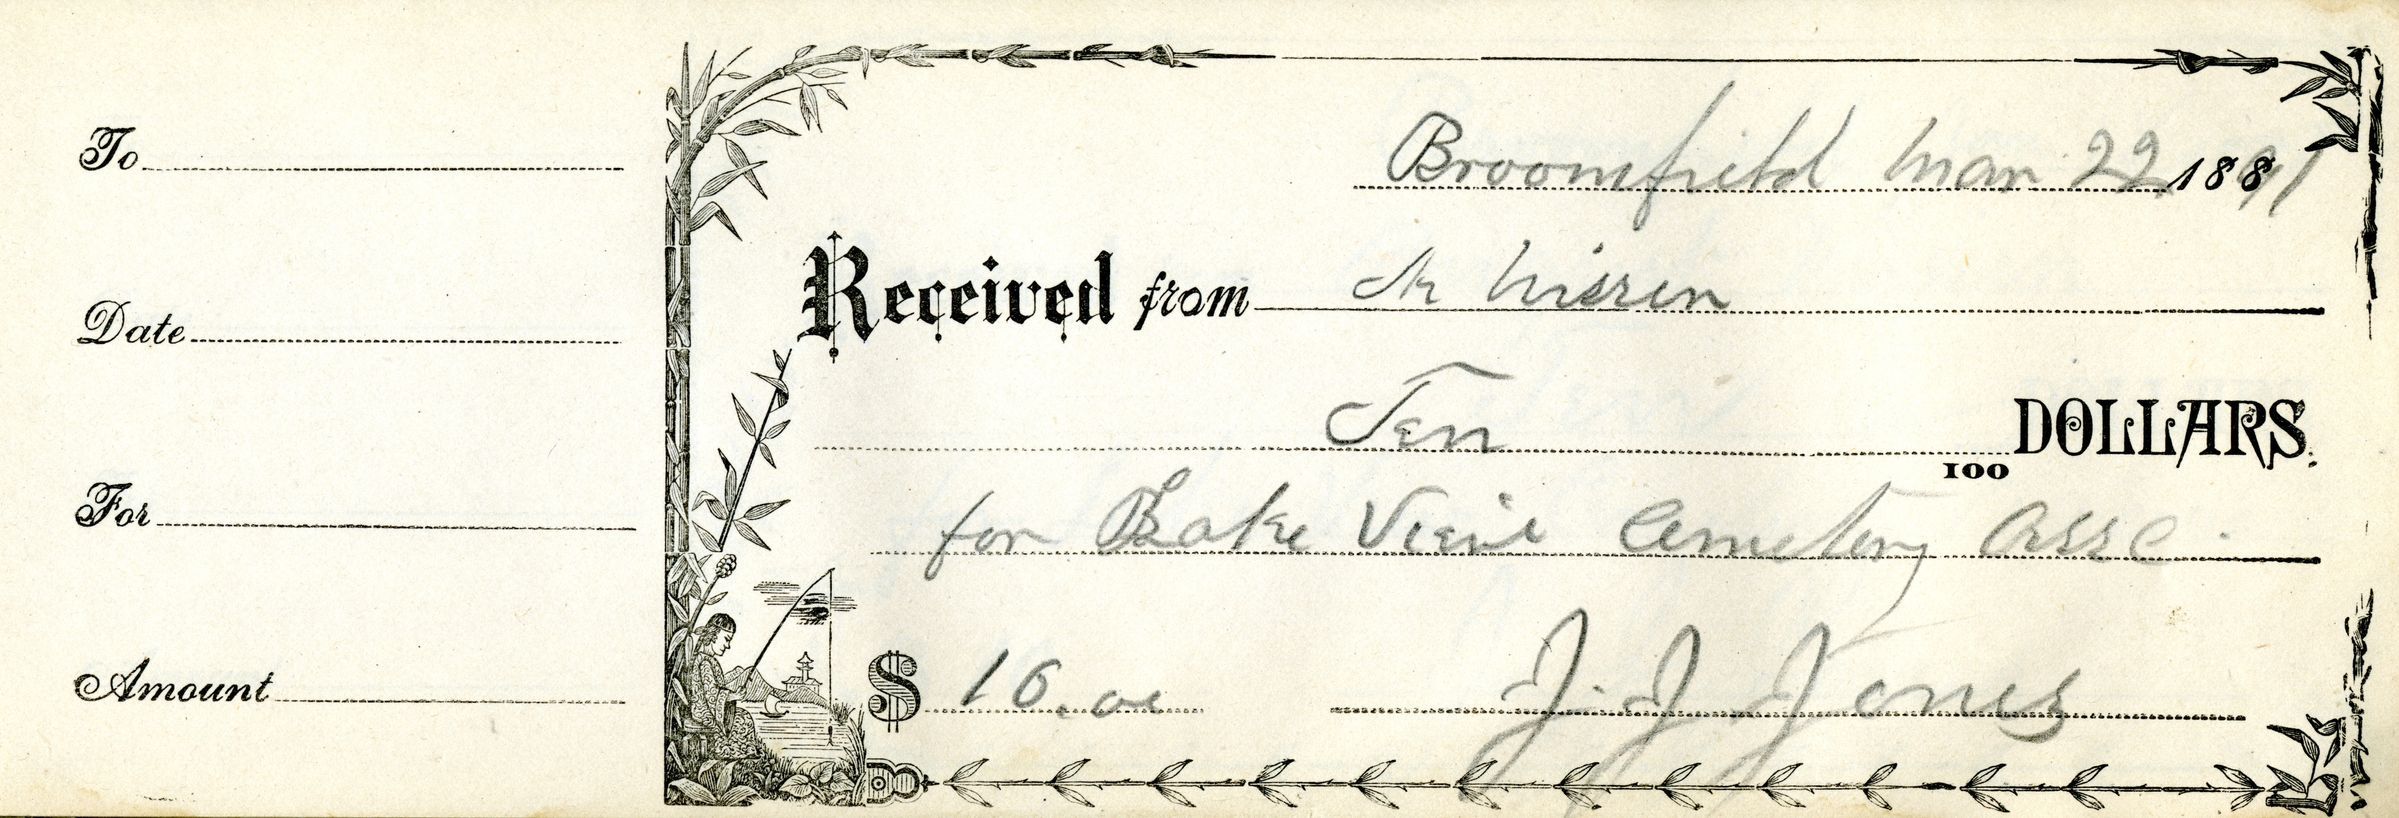 To
Date
For
Amount
Broomfield Mar 22 1891
Received from
Ten
100 DOLLARS.
for Lake View Cemetery Assc.
$ 10.00 J. J. Jones